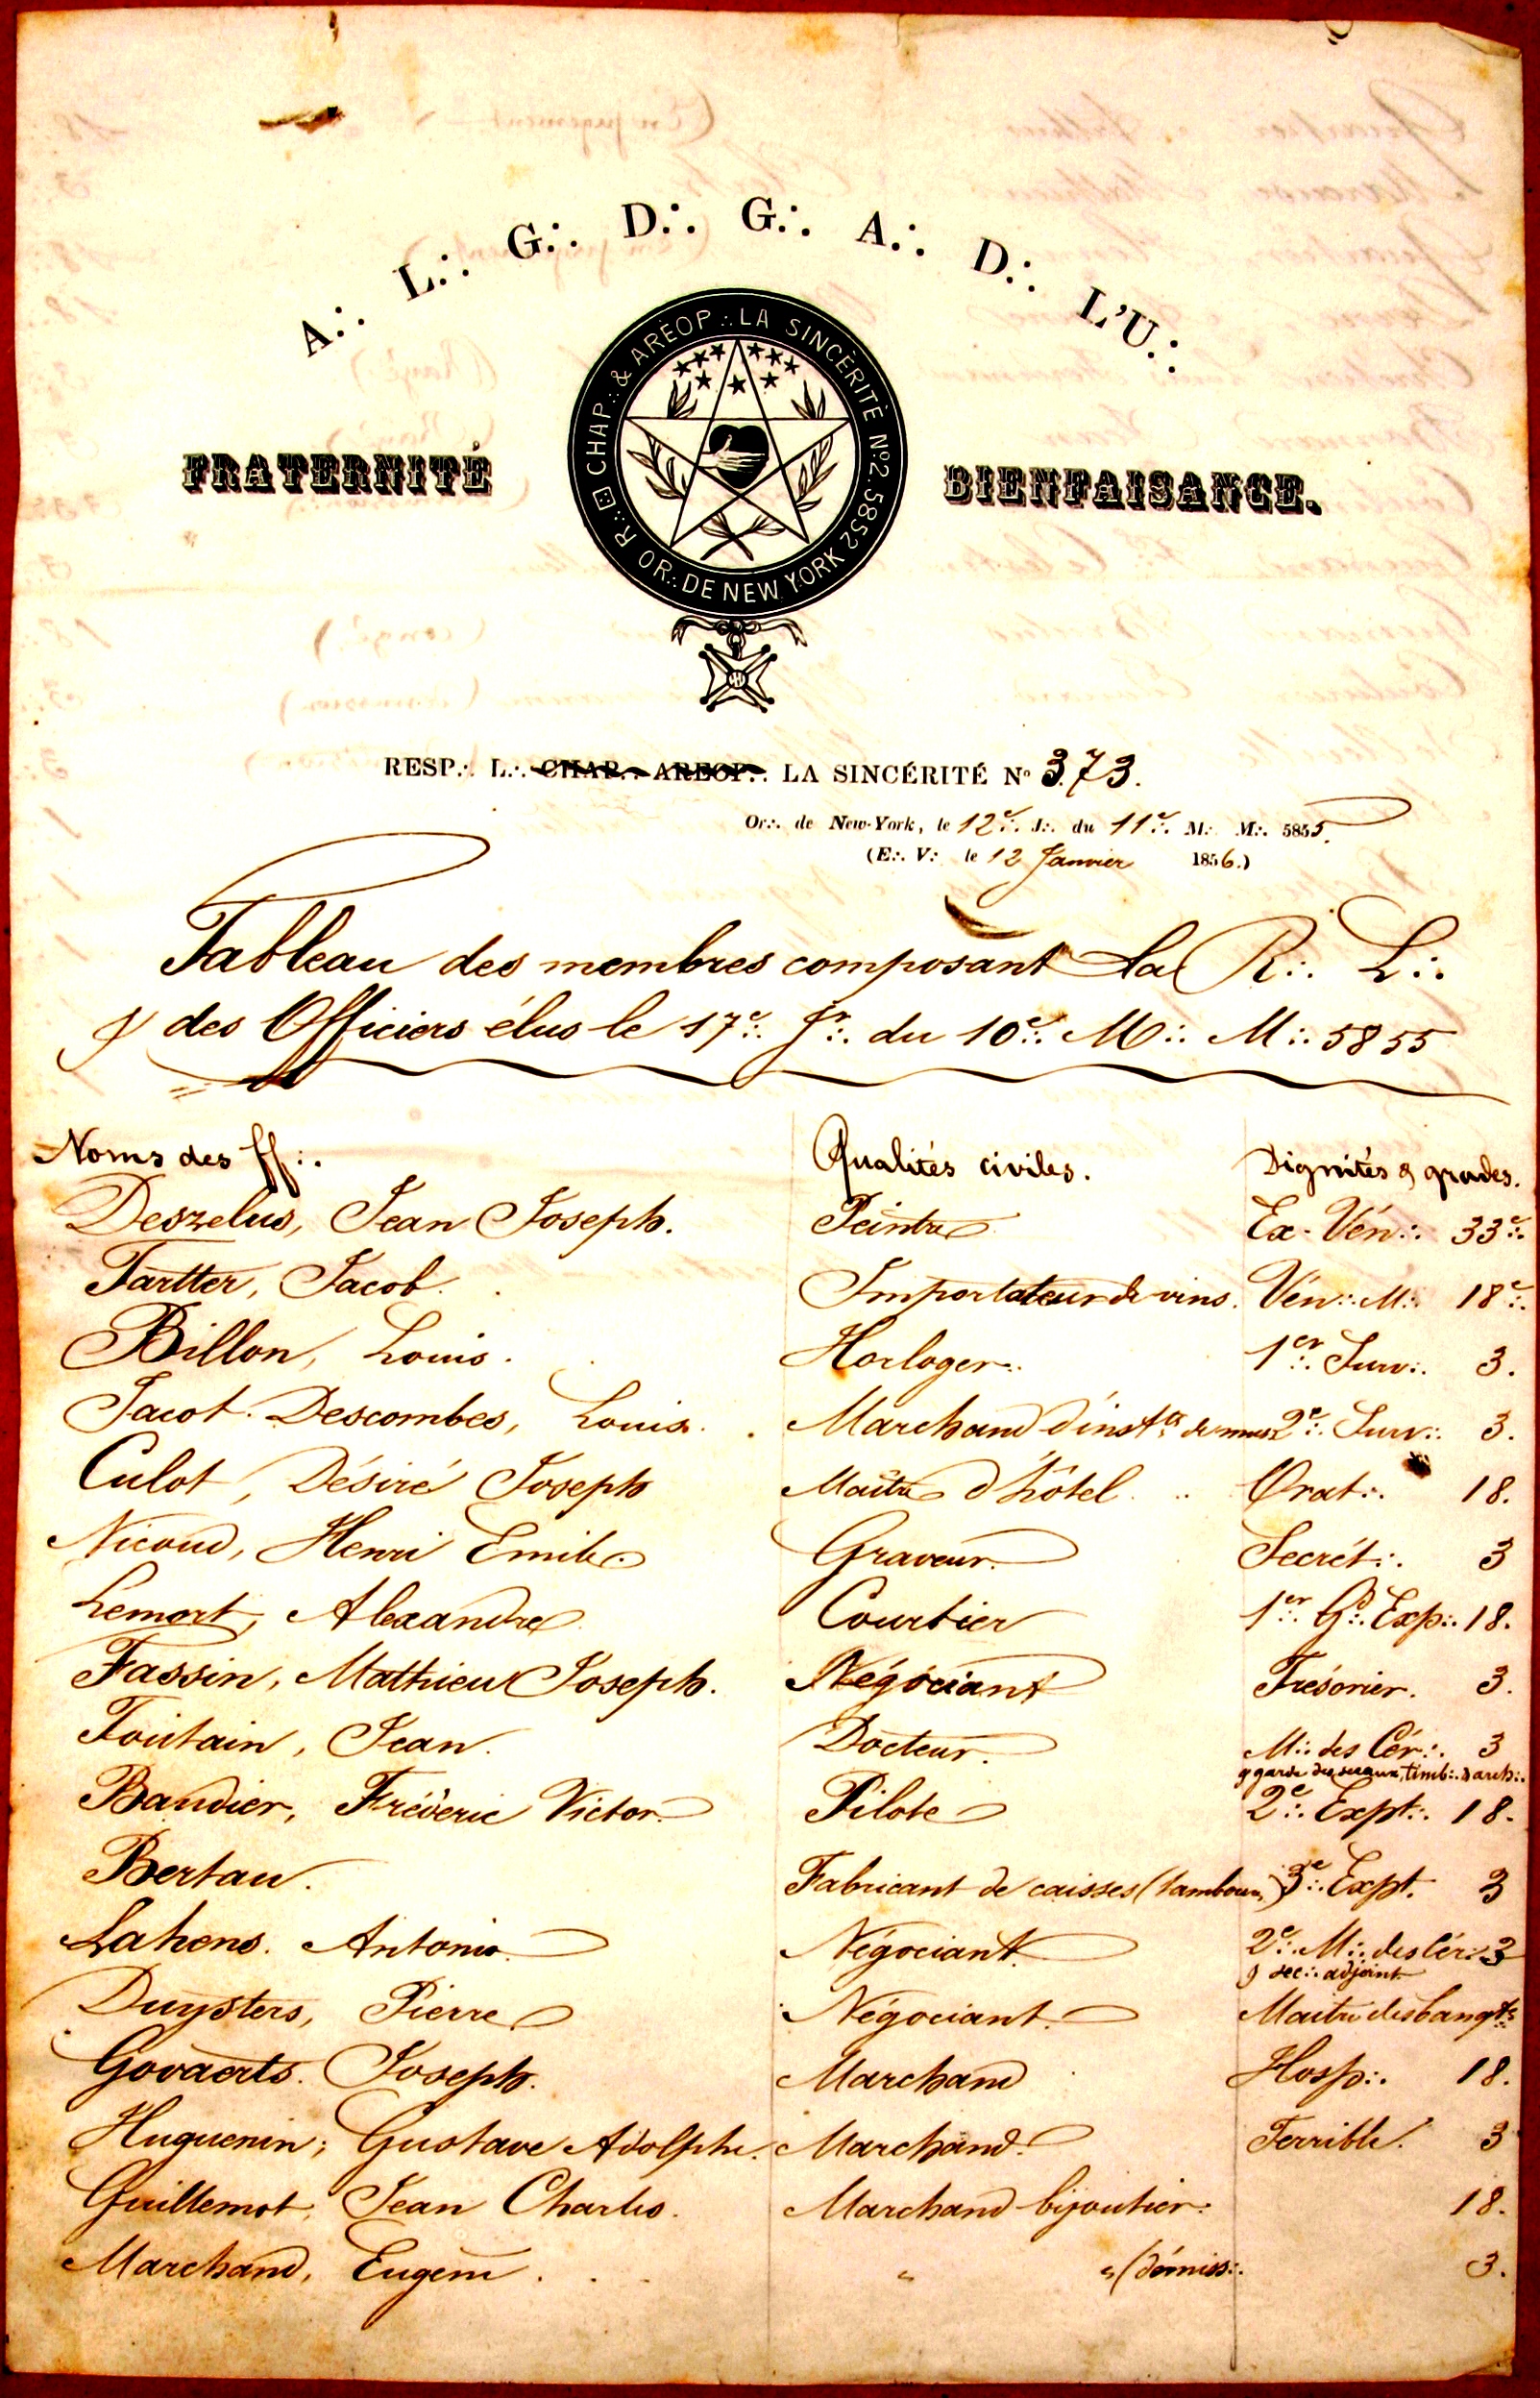 A∴ L∴ G∴ D∴ G∴ A∴ D∴ L'U∴
R∴ CHAP∴ & ARÉOP∴ LA SINCÉRITÉ Nº2. 5852
OR∴ DE NEW YORK
FRATERNITÉ BIENFAISANCE.
RESP∴ L∴ CHAP∴ AREOP∴ LA SINCÉRITÉ Nº 373.
Or∴ de New-York, le 12e∴ J∴ du 11e∴ M∴ M∴ 5855.
(E∴ V∴ le 12 Janvier 1856.)
Tableau des membres composant la R∴ L∴
& des Officiers élus le 17e∴ Jr∴ du 10e∴ M∴ M∴ 5855
Noms des ff∴ Qualités civiles. Dignités & grades.
Deszelus, Jean Joseph. Peintre Ex-Vén∴ 33e∴
Tartter, Jacob. Importateur de vins. Vén∴ M∴ 18e∴
Billon, Louis. Horloger. 1er∴ Surv∴ 3.
Jacot-Descombes, Louis. Marchand d'insts de mus 2e∴ Surv∴ 3.
Culot, Désiré Joseph Maître d'hôtel. Orat∴ 18.
Nicoud, Henri Emile. Graveur. Secrét∴ 3
Lemort, Alexandre Courtier 1er∴ Gd∴ Exp∴ 18.
Fassin, Mathieu Joseph. Négociant Trésorier. 3.
Toutain, Jean. Docteur. M∴ des Cér∴ 3
& garde des sceaux, timb∴ & arch∴
Baudier, Fréderic Victor. Pilote 2e∴ Expt∴ 18.
Bertau. Fabricant de caisses (tambours) 3e∴ Expt. 3
Lahens. Antonio. Négociant. 2e∴ M∴ des Cér∴ 3
& sec∴ adjoint
Duysters, Pierre Négociant. Maitre des banqts
Govaerts. Joseph. Marchand Hosp∴ 18.
Huguenin, Gustave Adolphe. Marchand. Terrible. 3
Guillemot, Jean Charles. Marchand bijoutier. 18.
Marchand, Eugène . . . " " (démiss∴ 3.